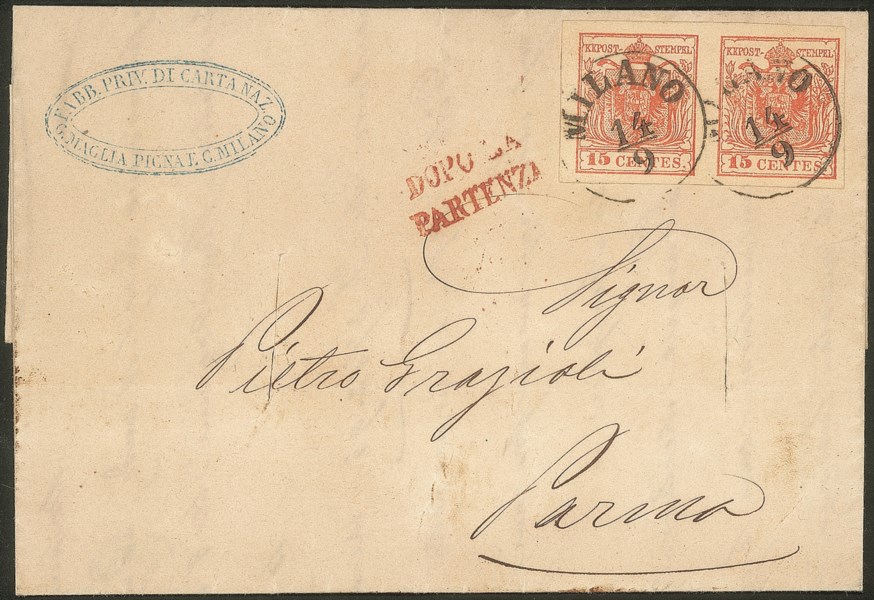 FABB. PRIV. DI CARTA NAZ.
G. MAGLIA PIGNA E C. MILANO
KKPOST-STEMPEL
MILANO
14/9
15 CENTES.
KKPOST-STEMPEL
MILANO
14/9
15 CENTES.
DOPO LA
PARTENZA
Signor
Pietro Grazioli
Parma